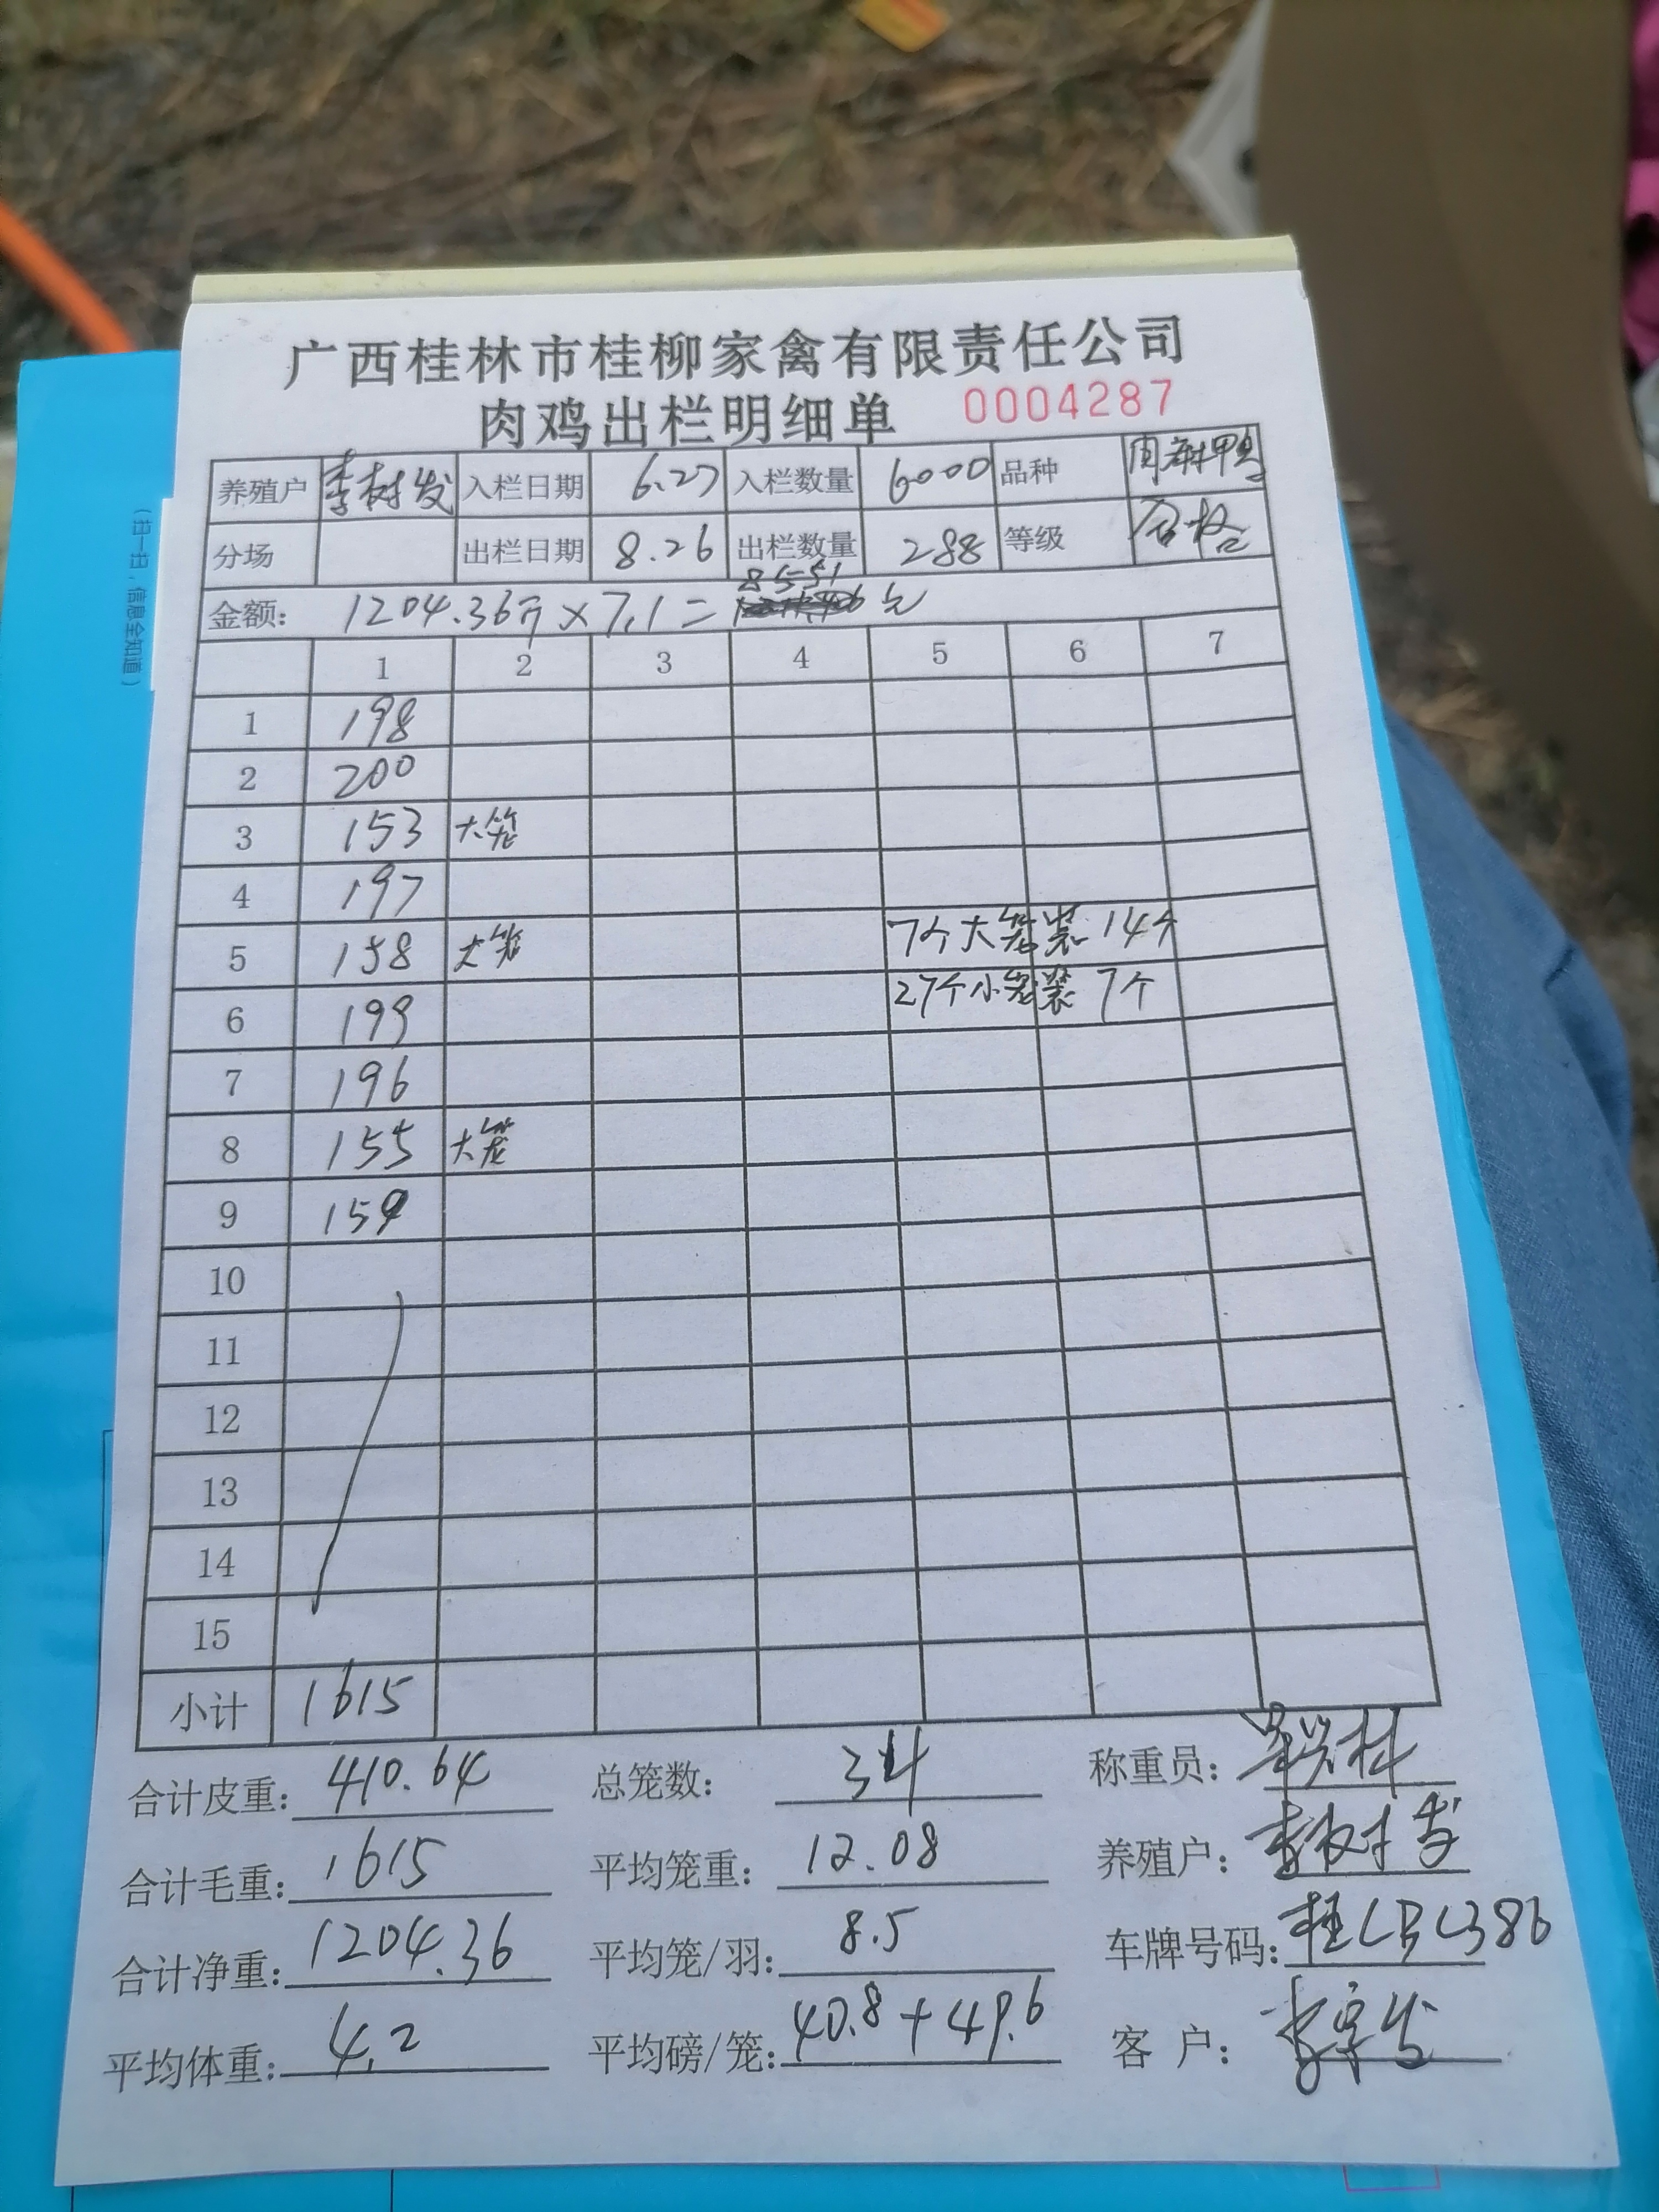 广西桂林市桂柳家禽有限责任公司
肉鸡出栏明细单 0004287
养殖户 李树发 入栏日期 6.27 入栏数量 6000 品种 肉麻鸭
分场 出栏日期 8.26 出栏数量 288 等级 合格
8551
金额: 1204.36斤×7.1= 元
1 2 3 4 5 6 7
1 198
2 200
3 153 大笼
4 197
5 158 大笼 7个大笼装14个
6 199 27个小笼装7个
7 196
8 155 大笼
9 159
10
11
12
13
14
15
小计 1615
合计皮重: 410.64 总笼数: 34 称重员:
合计毛重: 1615 平均笼重: 12.08 养殖户: 李树发
合计净重: 1204.36 平均笼/羽: 8.5 车牌号码:
平均体重: 4.2 平均磅/笼: 40.8+49.6 客 户:
(扫一扫,信息全知道)